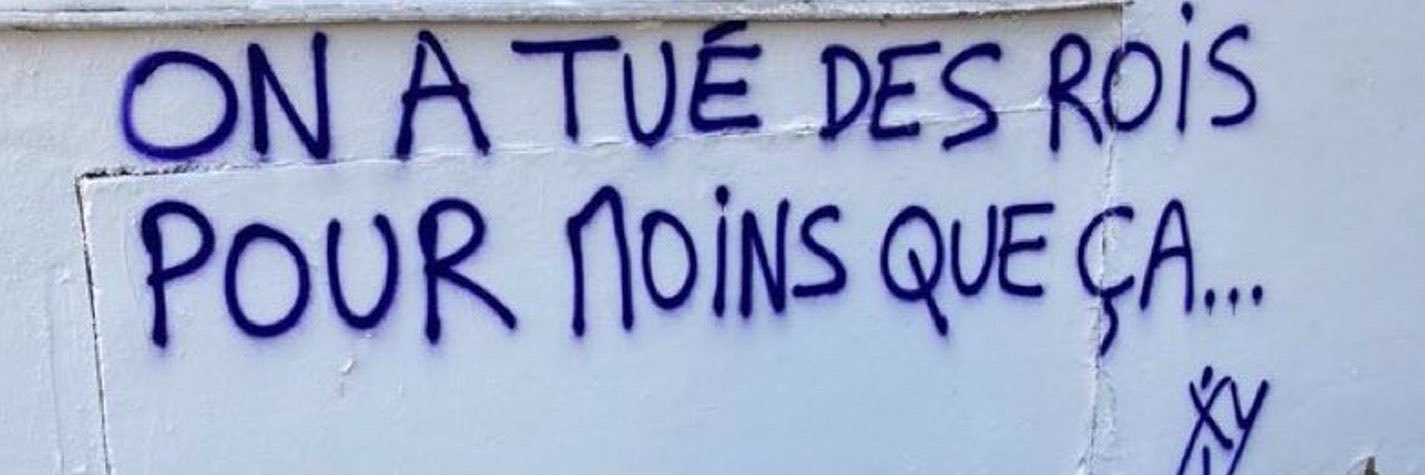 ON A TUÉ DES ROIS
POUR MOINS QUE ÇA...